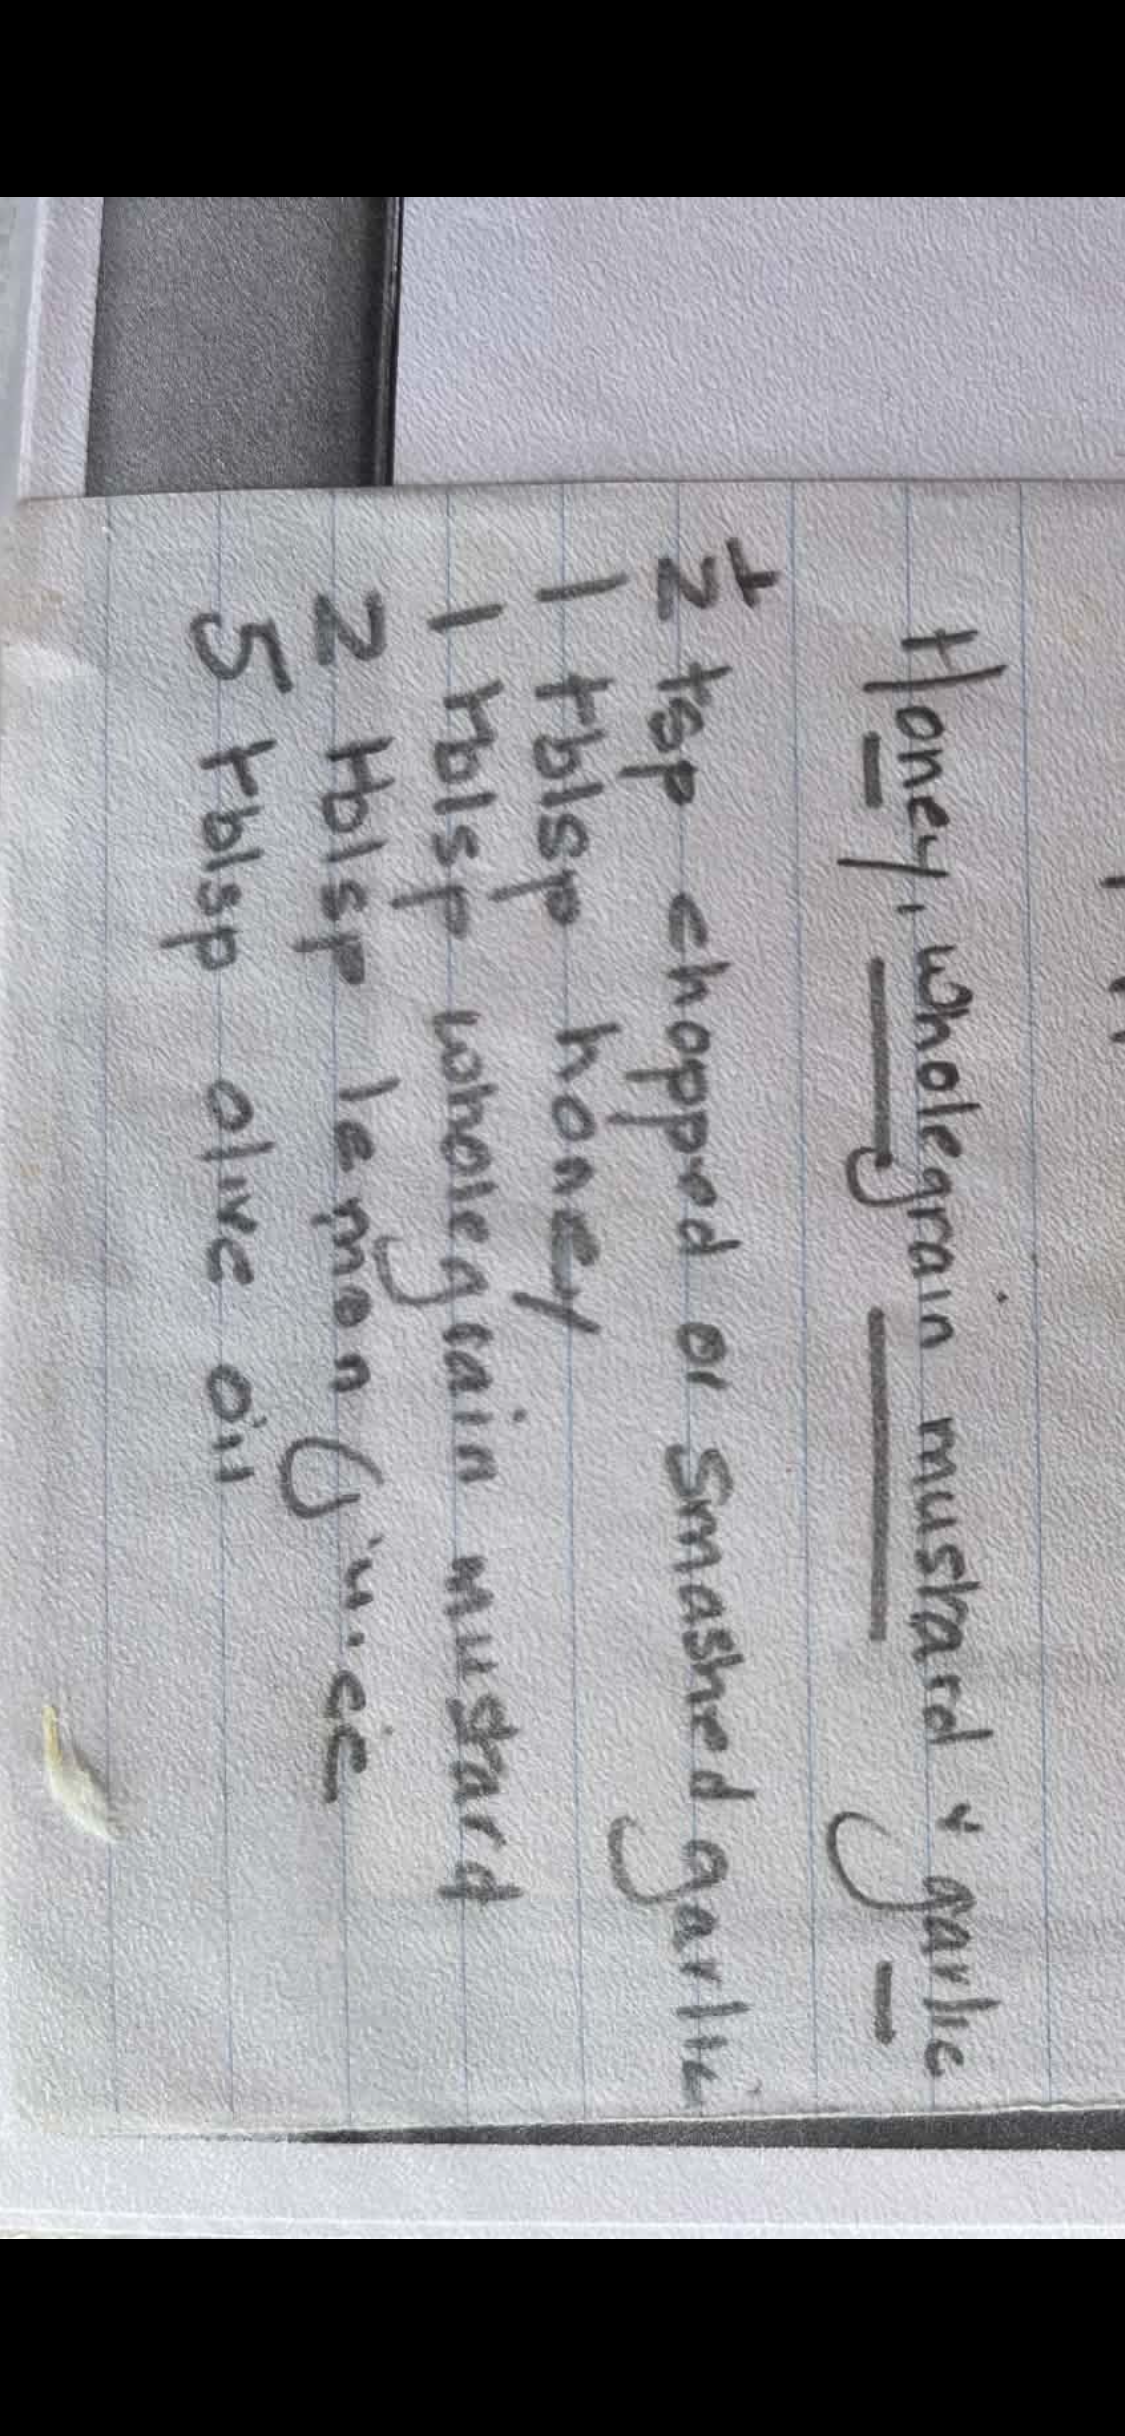 Honey, wholegrain mustard & garlic
½ tsp chopped or smashed garlic
1 tblsp honey
1 tblsp wholegrain mustard
2 tblsp lemon juice
5 tblsp olive oil